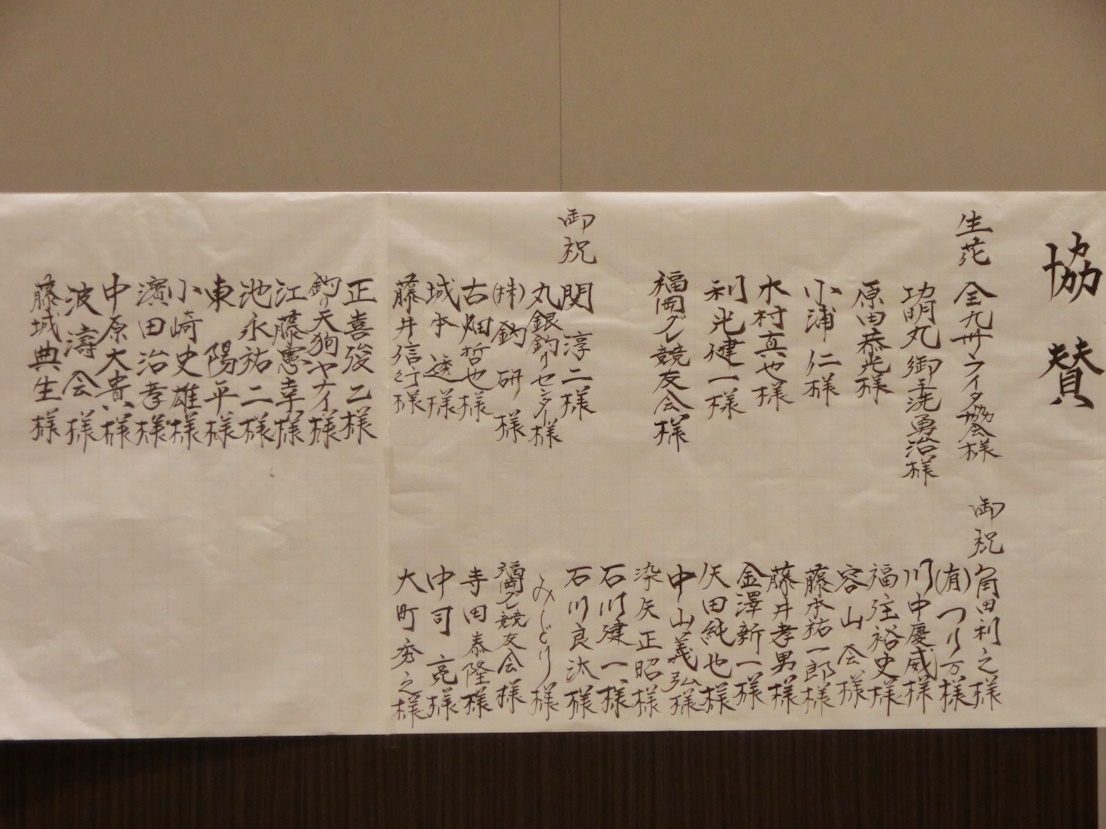 協賛
生花
全九州フライタ協会様
功明丸 御手洗勇治様
原田恭光様
小浦仁様
水村真也様
利光健一様
福岡グレ競友会様
御祝
関淳二様
丸銀釣りセンター様
(株)釣研様
古畑哲也様
城本透様
藤井信行様
正喜俊乙様
釣り天狗ヤナイ様
江藤憲幸様
池永祐二様
東陽平様
小崎史雄様
濱田治孝様
中原大貴様
波濤会様
藤城典生様
御祝
角田利之様
(有)つり万様
川中慶威様
福注裕史様
容山会様
藤本祐一郎様
藤井孝男様
金澤新一様
矢田純也様
中山義弘様
染矢正昭様
石川健一様
石川良汰様
みどり様
福岡グレ競友会様
寺田泰隆様
中司亮様
大町秀之様